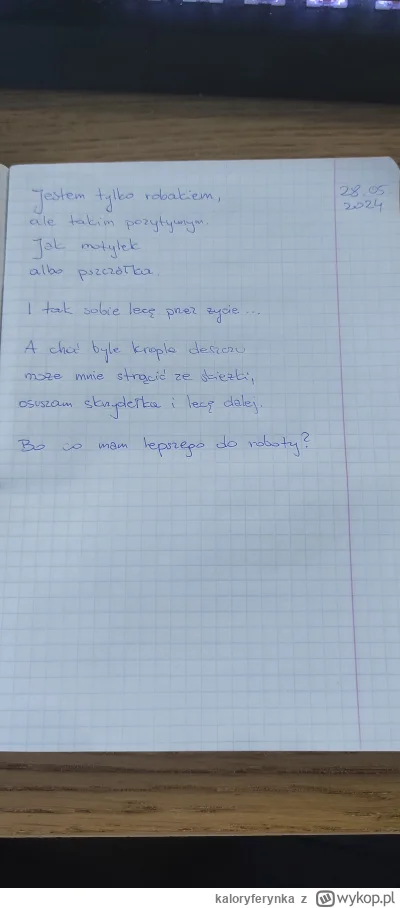 Jestem tylko robakiem,
ale takim pozytywnym.
Jak motylek
albo pszczółka.
I tak sobie lecę przez życie...
A choć byle kropla deszczu
może mnie strącić ze ścieżki,
osuszam skrzydełka i lecę dalej.
Bo co mam lepszego do roboty?
28.05
2024
kaloryferynka z wykop.pl